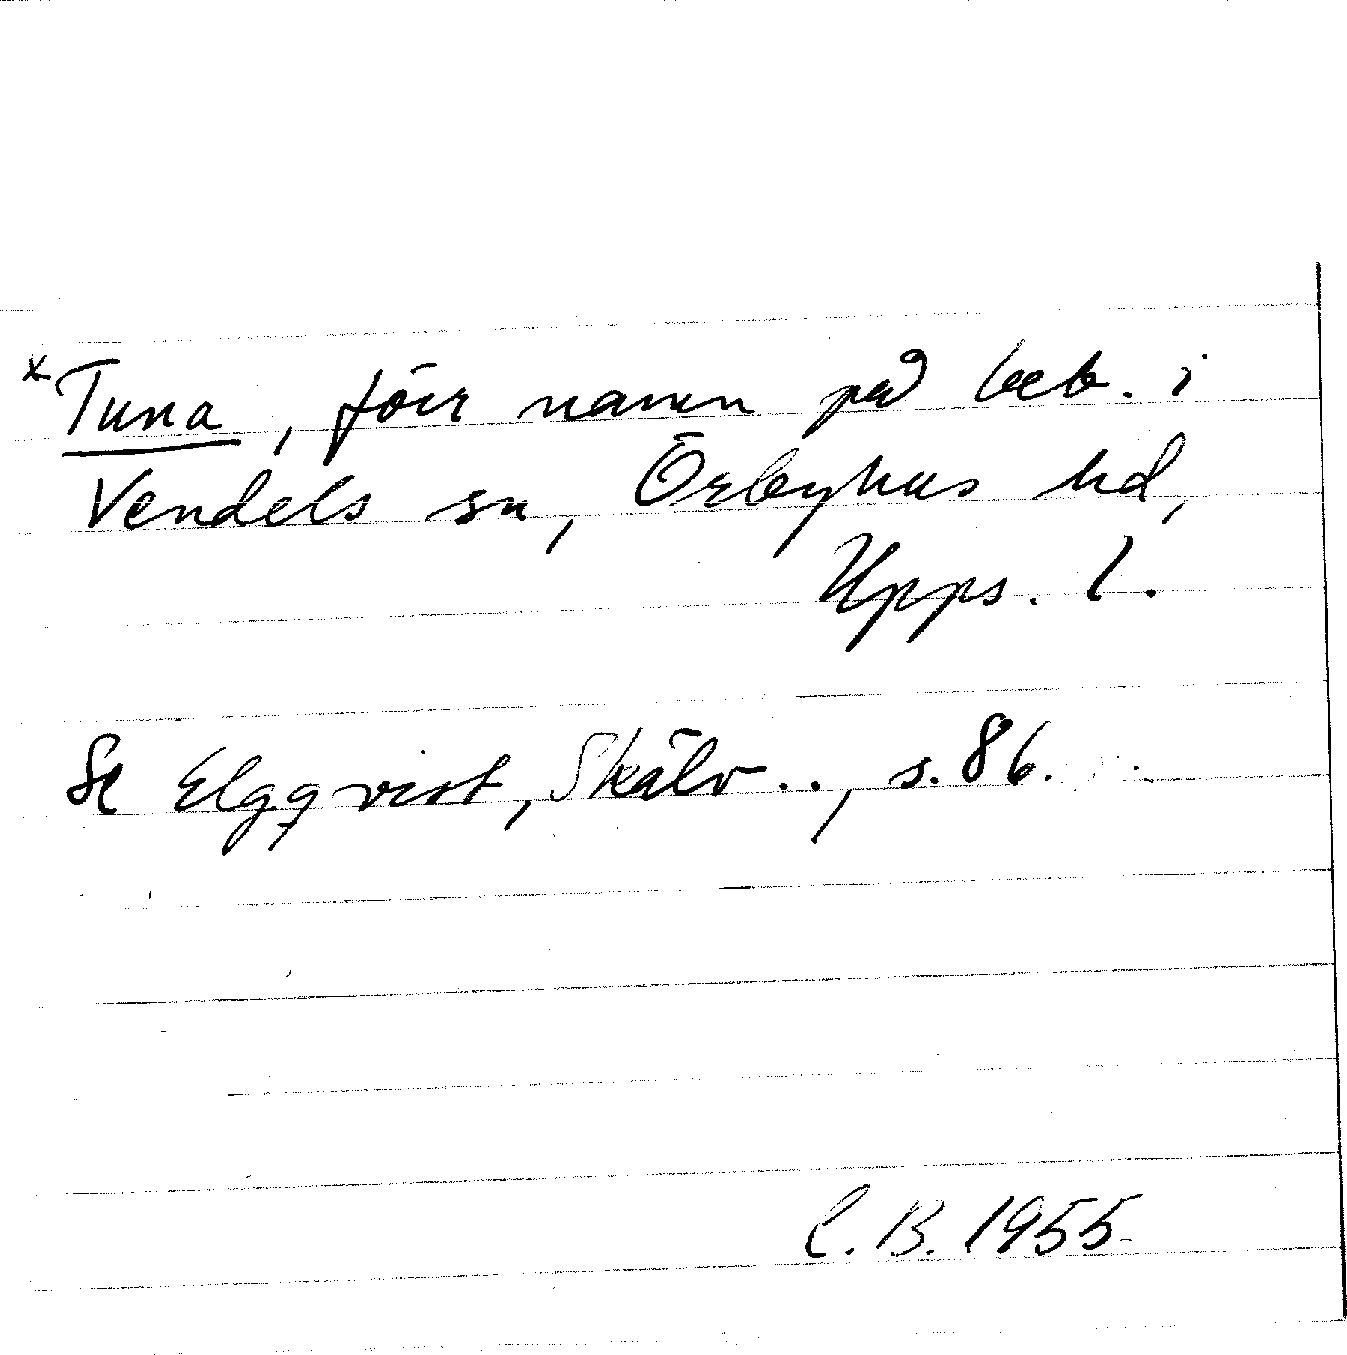 *Tuna, förr namn på beb. i
Vendels sn, Örbyhus hd,
Upps. l.
Se Elgqvist, Skälv.., s. 86.
C.B. 1955